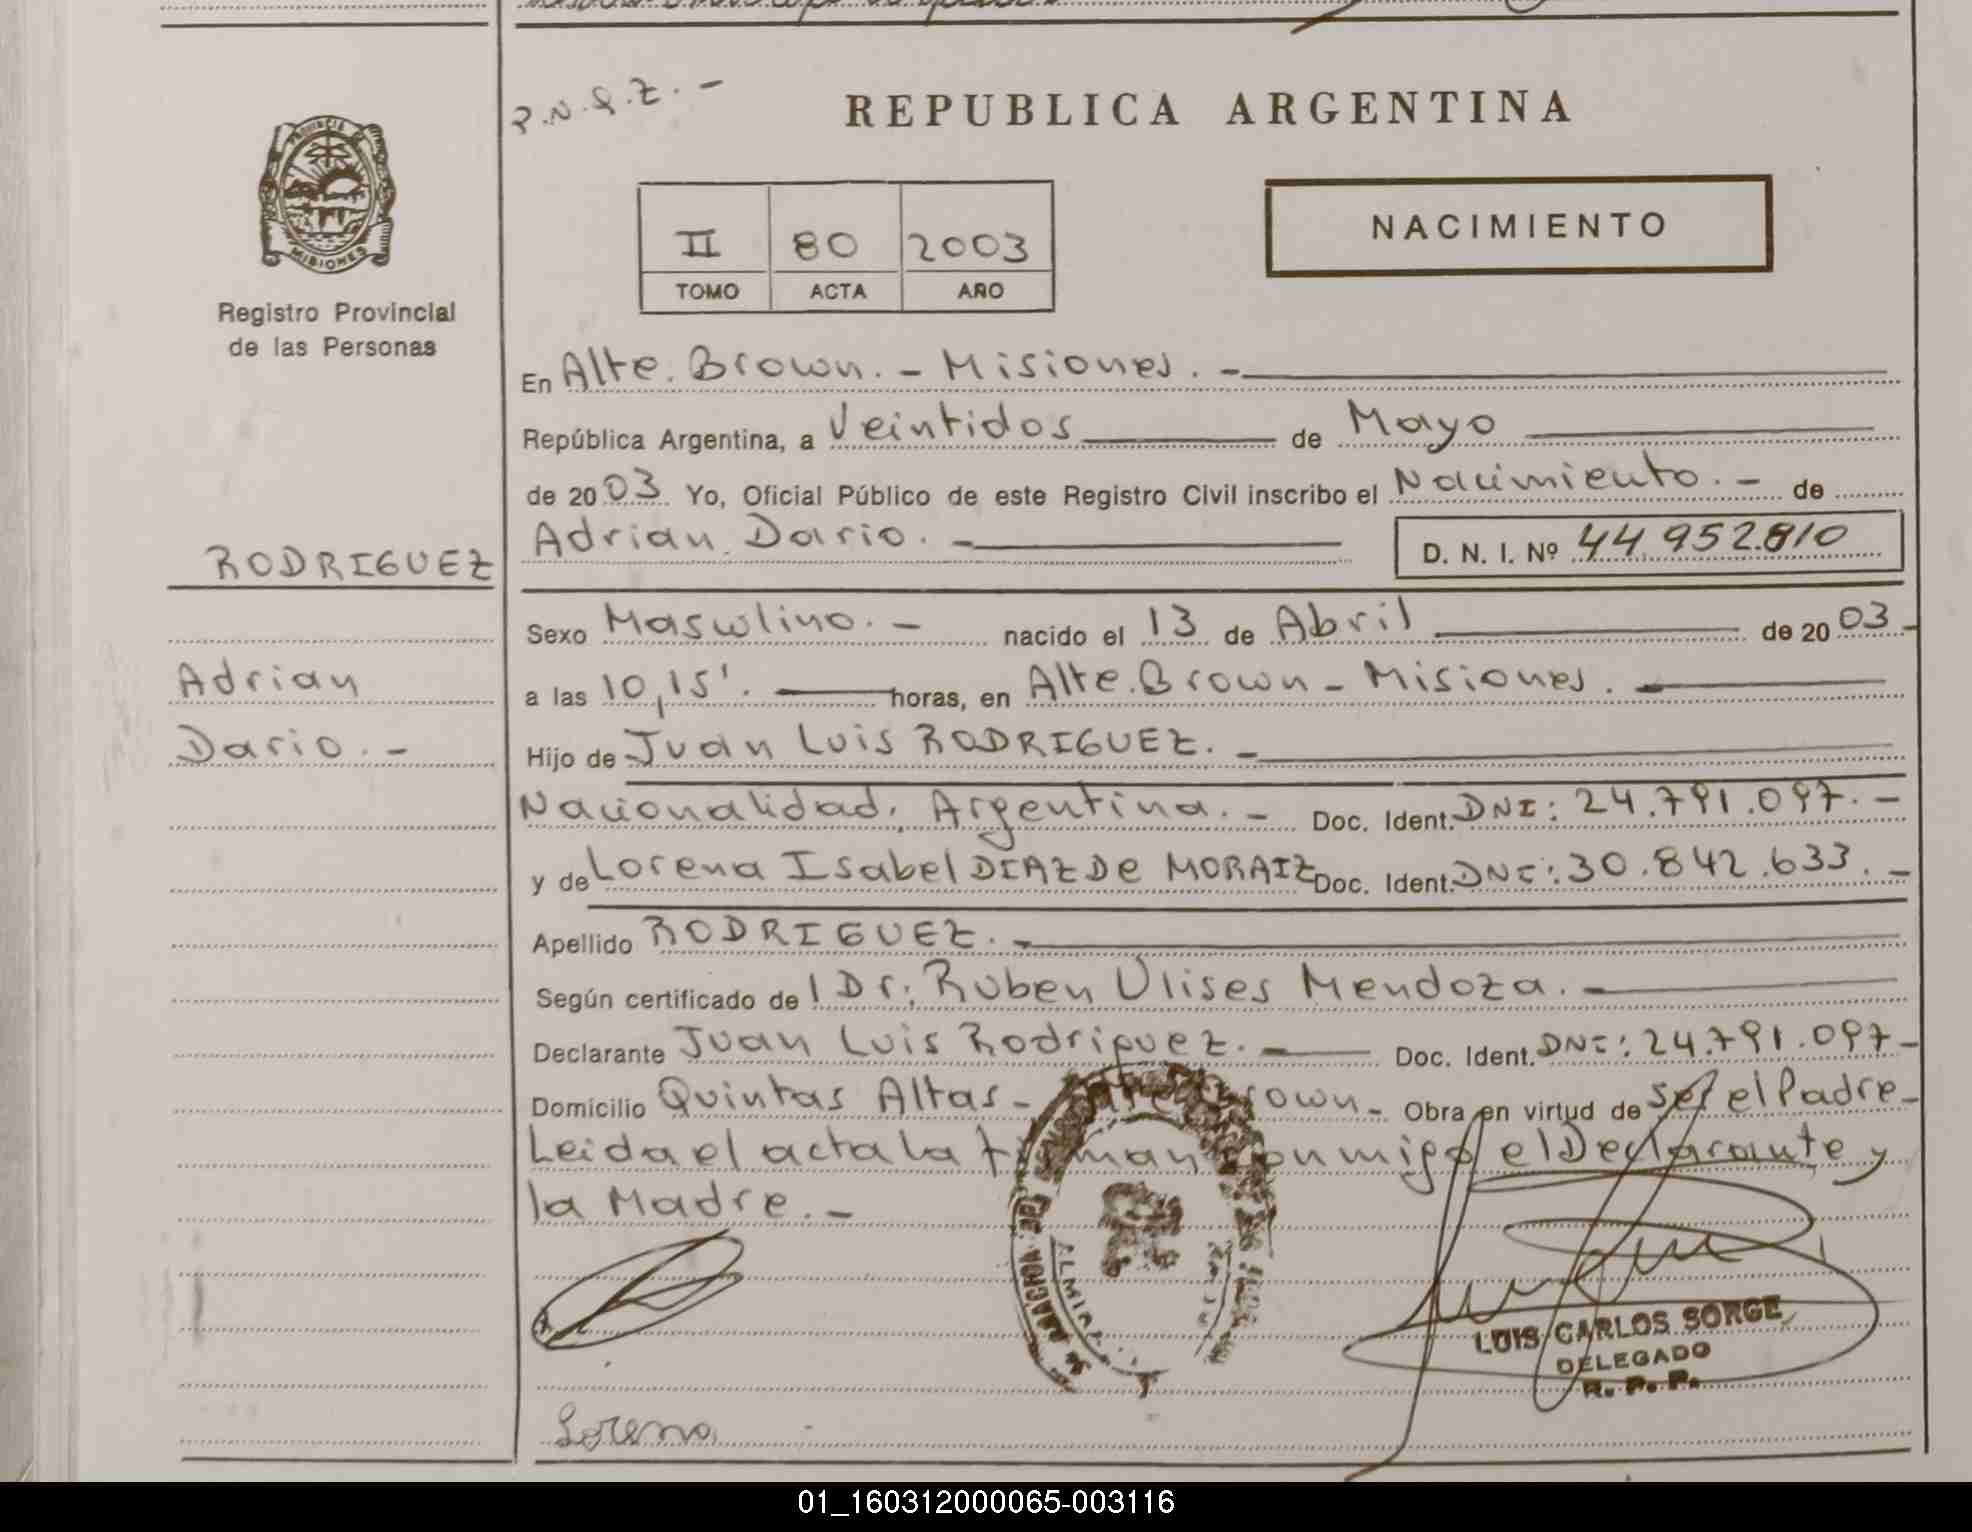 P.N.Q.Z. -
REPUBLICA ARGENTINA
PROVINCIA DE MISIONES
Registro Provincial
de las Personas
II 80 2003
TOMO ACTA AÑO
NACIMIENTO
En Alte. Brown. - Misiones. -
República Argentina, a Veintidos de Mayo
de 2003 Yo, Oficial Público de este Registro Civil inscribo el Nacimiento. - de
Adrian Dario. -
D. N. I. Nº 44.952.810
RODRIGUEZ
Adrian
Dario. -
Sexo Masculino. - nacido el 13 de Abril de 2003 -
a las 10,15'. horas, en Alte. Brown - Misiones. -
Hijo de Juan Luis RODRIGUEZ. -
Nacionalidad. Argentina. - Doc. Ident. DNI: 24.791.097. -
y de Lorena Isabel DIAZ DE MORAIZ Doc. Ident. DNI: 30.842.633. -
Apellido RODRIGUEZ. -
Según certificado de l Dr. Ruben Ulises Mendoza. -
Declarante Juan Luis Rodriguez. - Doc. Ident. DNI: 24.791.097 -
Domicilio Quintas Altas - Alte. Brown - Obra en virtud de ser el Padre -
Leida el acta la firman conmigo el Declarante y
la Madre. -
LUIS CARLOS SORGE
DELEGADO
R. P. P.
Lorena
01_160312000065-003116